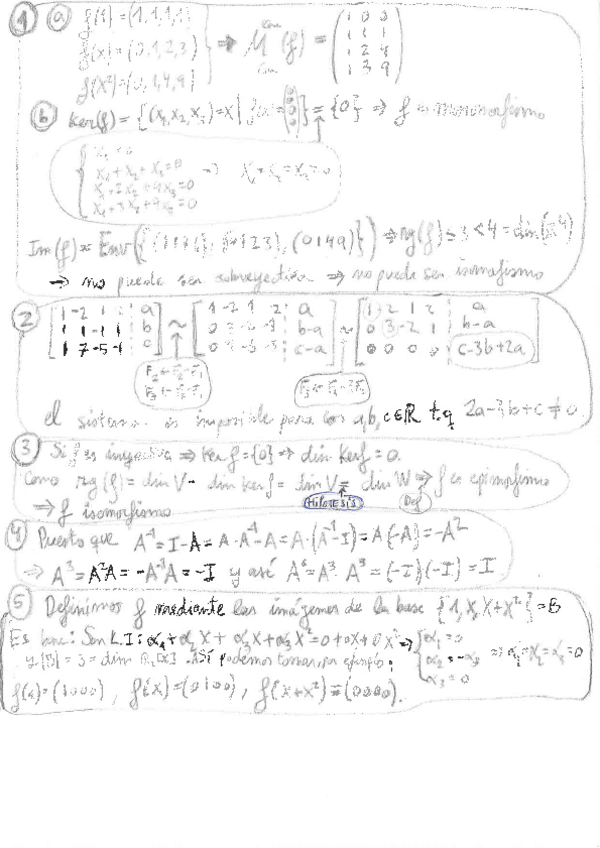 1 a f(1) = (1,1,1,1)
f(x) = (0,1,2,3) ⇒ M (f) = ( 1 0 0
1 1 1
1 2 4
1 3 9 )
f(x²) = (0,1,4,9)
b Ker(f) = {(x₁,x₂,x₃)=X | f(x) = (0 0 0 0)} = {0} ⇒ f es monomorfismo
x₁ = 0
x₁ + x₂ + x₃ = 0 → x₁ = x₂ = x₃ = 0
x₁ + 2x₂ + 4x₃ = 0
x₁ + 3x₂ + 9x₃ = 0
Im(f) = Env({(1 1 1 1), (0 1 2 3), (0 1 4 9)}) ⇒ rg(f) ≤ 3 < 4 = dim(ℝ⁴)
→ no puede ser sobreyectiva ⇒ no puede ser isomorfismo
2 [ 1 -2 1 2 a
1 1 -1 1 b
1 7 -5 -1 c ] ~ [ 1 -2 1 2 a
0 3 -2 -1 b-a
0 9 -6 -3 c-a ] ~ [ 1 -2 1 2 a
0 3 -2 1 b-a
0 0 0 0 c-3b+2a ]
F₂ ← F₂ - F₁
F₃ ← F₃ - F₁
F₃ ← F₃ - 3F₂
el sistema es imposible para los a,b,c ∈ ℝ t.q 2a-3b+c ≠ 0.
3 Si f es inyectiva ⇒ Ker f = {0} ⇒ dim Ker f = 0.
Como rg(f) = dim V - dim Ker f = dim V = dim W ⇒ f es epimorfismo
HIPOTESIS Def
⇒ f isomorfismo
4 Puesto que A⁻¹ = I - A = A·A⁻¹ - A = A·(A⁻¹ - I) = A(-A) = -A²
⇒ A³ = A²A = -A⁻¹A = -I y así A⁶ = A³·A³ = (-I)(-I) = I
5 Definimos f mediante las imágenes de la base {1, X, X+X²} = B
Es base: Son L.I: α₁ + α₂X + α₃X + α₃X² = 0+0X+0X² ⇒ { α₁ = 0
α₂ = -α₃ ⇒ α₁ = α₂ = α₃ = 0
α₃ = 0
y |B| = 3 = dim ℝ₂[X]. Así podemos tomar, por ejemplo:
f(1) = (1000), f(X) = (0100), f(X+X²) = (0000).